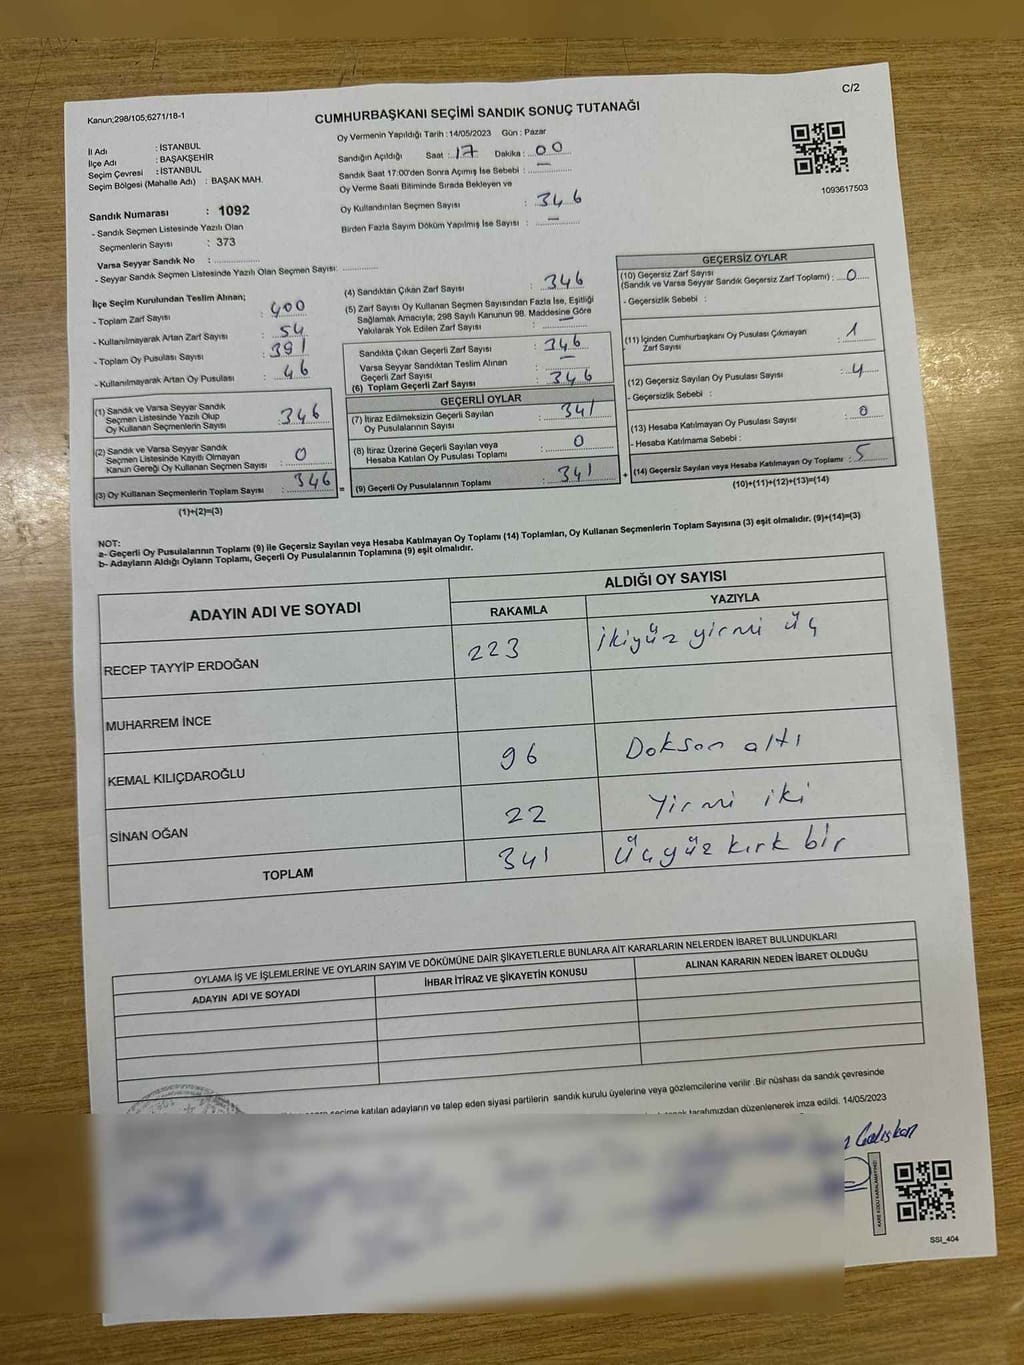 C/2
Kanun;298/105;6271/18-1
CUMHURBAŞKANI SEÇİMİ SANDIK SONUÇ TUTANAĞI
İl Adı : İSTANBUL
İlçe Adı : BAŞAKŞEHİR
Seçim Çevresi : İSTANBUL
Seçim Bölgesi (Mahalle Adı) : BAŞAK MAH.
Sandık Numarası : 1092
- Sandık Seçmen Listesinde Yazılı Olan
Seçmenlerin Sayısı : 373
Varsa Seyyar Sandık No :
- Seyyar Sandık Seçmen Listesinde Yazılı Olan Seçmen Sayısı:
Oy Vermenin Yapıldığı Tarih : 14/05/2023 Gün : Pazar
Sandığın Açıldığı Saat : 17 Dakika : 00
Sandık Saat 17:00'den Sonra Açımış İse Sebebi : —
Oy Verme Saati Bitiminde Sırada Bekleyen ve
Oy Kullandırılan Seçmen Sayısı : 346
Birden Fazla Sayım Döküm Yapılmış İse Sayısı : —
1093617503
İlçe Seçim Kurulundan Teslim Alınan;
- Toplam Zarf Sayısı : 400
- Kullanılmayarak Artan Zarf Sayısı : 54
- Toplam Oy Pusulası Sayısı : 391
- Kullanılmayarak Artan Oy Pusulası : 46
(1) Sandık ve Varsa Seyyar Sandık
Seçmen Listesinde Yazılı Olup
Oy Kullanan Seçmenlerin Sayısı : 346
(2) Sandık ve Varsa Seyyar Sandık
Seçmen Listesinde Kayıtlı Olmayan
Kanun Gereği Oy Kullanan Seçmen Sayısı : 0
(3) Oy Kullanan Seçmenlerin Toplam Sayısı : 346
(1)+(2)=(3)
(4) Sandıktan Çıkan Zarf Sayısı : 346
(5) Zarf Sayısı Oy Kullanan Seçmen Sayısından Fazla İse, Eşitliği
Sağlamak Amacıyla; 298 Sayılı Kanunun 98. Maddesine Göre
Yakılarak Yok Edilen Zarf Sayısı : —
Sandıkta Çıkan Geçerli Zarf Sayısı : 346
Varsa Seyyar Sandıktan Teslim Alınan
Geçerli Zarf Sayısı : —
(6) Toplam Geçerli Zarf Sayısı : 346
GEÇERLİ OYLAR
(7) İtiraz Edilmeksizin Geçerli Sayılan
Oy Pusulalarının Sayısı : 341
(8) İtiraz Üzerine Geçerli Sayılan veya
Hesaba Katılan Oy Pusulası Toplamı : 0
= (9) Geçerli Oy Pusulalarının Toplamı : 341 +
GEÇERSİZ OYLAR
(10) Geçersiz Zarf Sayısı
(Sandık ve Varsa Seyyar Sandık Geçersiz Zarf Toplamı) : 0
- Geçersizlik Sebebi :
(11) İçinden Cumhurbaşkanı Oy Pusulası Çıkmayan
Zarf Sayısı : 1
(12) Geçersiz Sayılan Oy Pusulası Sayısı : 4
- Geçersizlik Sebebi :
(13) Hesaba Katılmayan Oy Pusulası Sayısı : 0
- Hesaba Katılmama Sebebi :
(14) Geçersiz Sayılan veya Hesaba Katılmayan Oy Toplamı : 5
(10)+(11)+(12)+(13)=(14)
NOT:
a- Geçerli Oy Pusulalarının Toplamı (9) ile Geçersiz Sayılan veya Hesaba Katılmayan Oy Toplamı (14) Toplamları, Oy Kullanan Seçmenlerin Toplam Sayısına (3) eşit olmalıdır. (9)+(14)=(3)
b- Adayların Aldığı Oyların Toplamı, Geçerli Oy Pusulalarının Toplamına (9) eşit olmalıdır.
ADAYIN ADI VE SOYADI
ALDIĞI OY SAYISI
RAKAMLA YAZIYLA
RECEP TAYYİP ERDOĞAN 223 İkiyüz yirmi üç
MUHARREM İNCE
KEMAL KILIÇDAROĞLU 96 Doksan altı
SİNAN OĞAN 22 Yirmi iki
TOPLAM 341 Üçyüz kırk bir
OYLAMA İŞ VE İŞLEMLERİNE VE OYLARIN SAYIM VE DÖKÜMÜNE DAİR ŞİKAYETLERLE BUNLARA AİT KARARLARIN NELERDEN İBARET BULUNDUKLARI
ADAYIN ADI VE SOYADI İHBAR İTİRAZ VE ŞİKAYETİN KONUSU ALINAN KARARIN NEDEN İBARET OLDUĞU
seçime katılan adayların ve talep eden siyasi partilerin sandık kurulu üyelerine veya gözlemcilerine verilir .Bir nüshası da sandık çevresinde
tarafımızdan düzenlenerek imza edildi. 14/05/2023
Çalışkan
KARE KODU KARALAMAYINIZ!
SSI_404